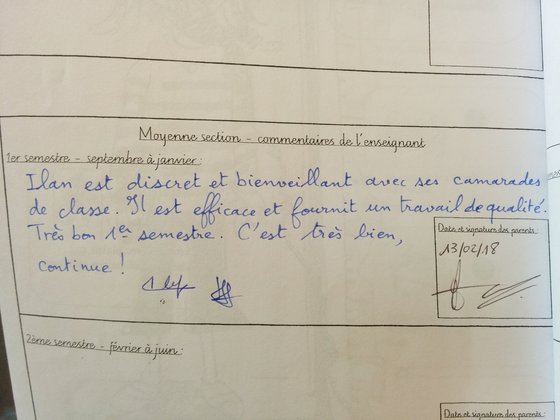 Moyenne section - commentaires de l'enseignant
1er semestre - septembre à janvier :
Ilan est discret et bienveillant avec ses camarades
de classe. Il est efficace et fournit un travail de qualité.
Très bon 1er semestre. C'est très bien,
continue !
Date et signature des parents :
13/02/18
2ème semestre - février à juin :
Date et signature des parents